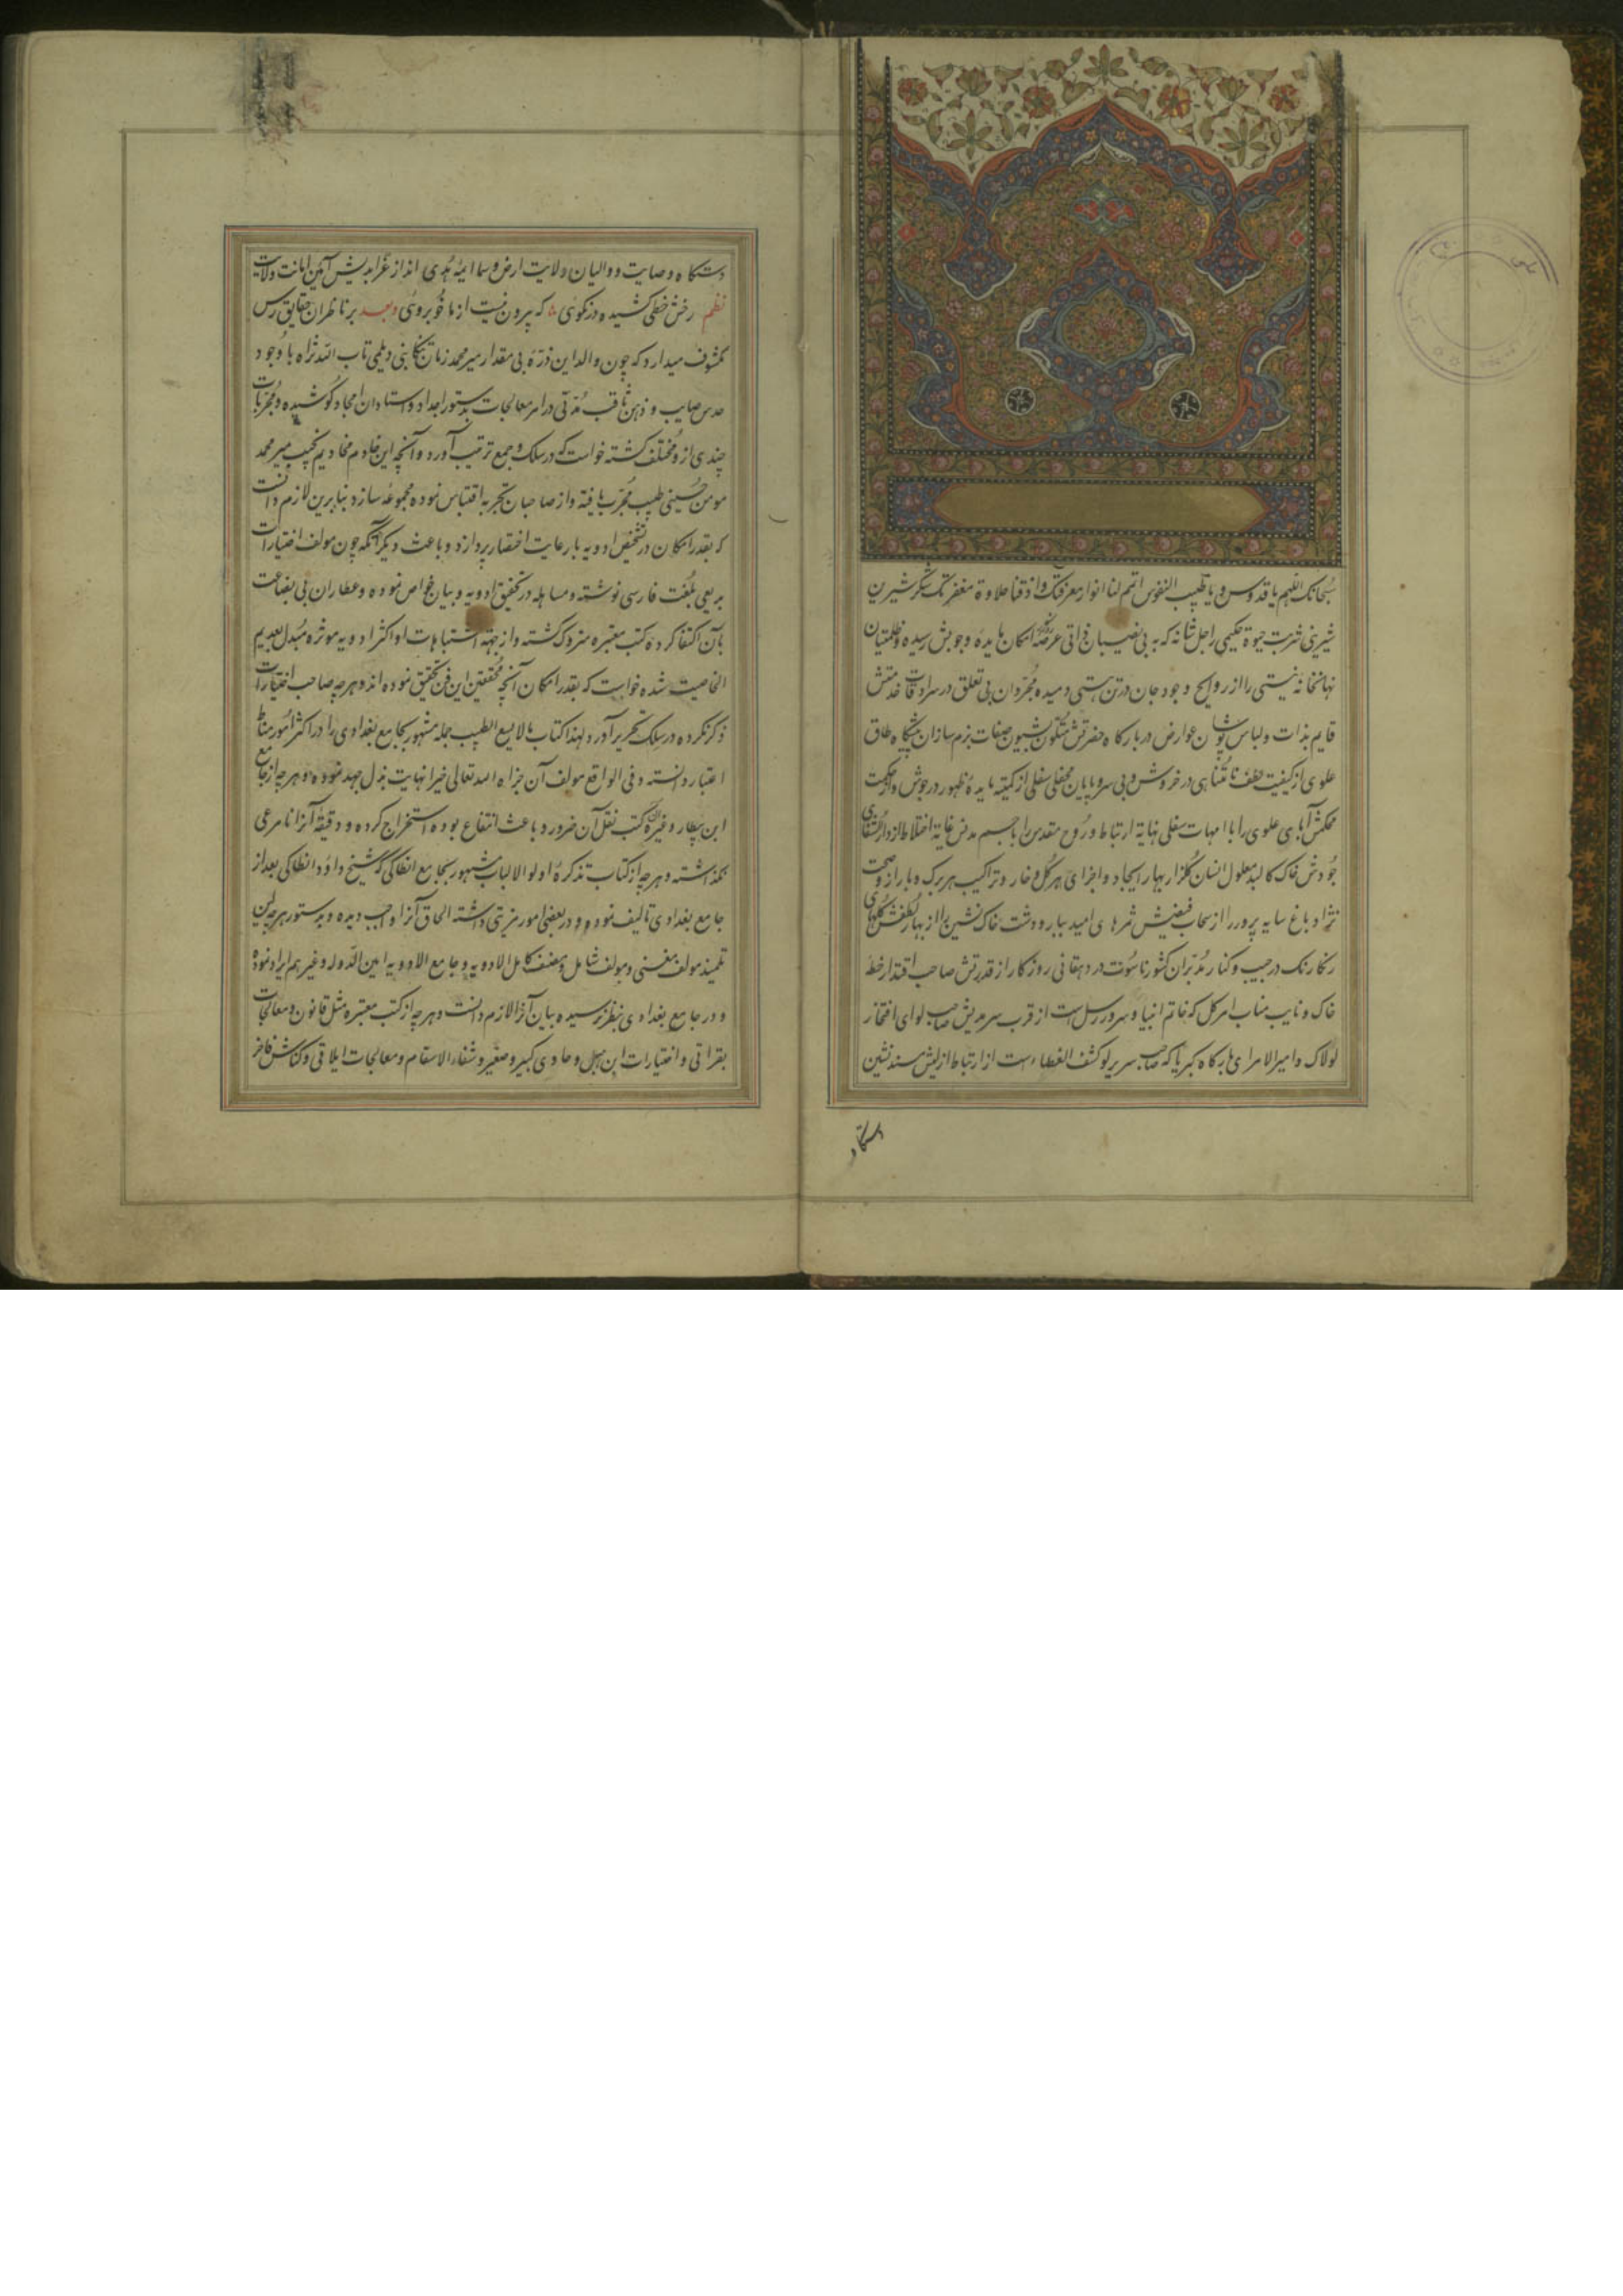 سبحانک اللهم یا قدوس و یا طبیب النفوس اتمم لنا انوار معرفتک و اذقنا حلاوة مغفرتک شکر شیرین
شیرینی شربت حیوة حکیمی را جل شانه که به بی نصیبان فراتی عرصه امکان مایده وجوبش رسیده و ظلمتیان
نهانخانه نیستی را از روایح وجود جان در تن هستی دمیده مجردان بی تعلق در سرادقات خدمتش
قایم بذات و لباس پوشان عوارض در بارکاه حضرتش متکون بشیون صفات بزم سازان پیشکاه طاق
علوی از کیفیت لطف نامتناهی در خروش و بی سر و پایان محفل سفلی از کمیته مایده ظهور در جوش و از حکمت
محکمش آبای علوی را با امهات سفلی نهایة ارتباط و روح مقدس را با جسم مدنس غایة اختلاط از دار الشفای
جودش خاک کالبد معلول انسان کلزار بهار ایجاد و اجزای هر کل و خار و تراکیب هر برک و بار از و صحت
نژاد باغ سایه پرور را از سحاب فیضش ثمرهای امید ببار و دشت خاک نشین را از بهار لطفش کلهای
رنکارنک در جیب و کنار مدبران کشور ناسوت در دهقانی روزکار از قدرتش صاحب اقتدار خطه
خاک و نایب مناب امر کل که خاتم انبیا و سرور رسل است از قرب سرمدیش صاحب لوای افتخار
لولاک و امیر الامرای بارکاه کبریا که صاحب سریر لو کشف الغطاء است از ارتباط ازلیش مسند نشین
دستکاه
دستکاه وصایت و والیان ولایت ارض و سما ائمه هدی انداز غرابدیش آمین امانت ولایت
نظم رخش خطی کشیده در نکوئی که بیرون نیست از ما خوبروئی وبعد بر ناظران حقایق رس
مکشوف میدارد که چون والد این ذره بی مقدار میر محمد زمان تنکابنی دیلمی تاب الله ثراه با وجود
حدس صایب و ذهن ثاقب مدتی در امر معالجات بدستور اجداد و استادان امجاد کوشیده و مجربات
چندی از و مختلف کشته خواست که در سلک و جمع ترتیب آورد و آنچه این خادم مخادیم نجیب میر محمد
مومن حسینی طبیب مجرب یافته و از صاحبان تجربه اقتباس نموده مجموعه سازد بنابرین لازم دانست
که بقدر امکان در تشخیص ادویه با رعایت اختصار پردازد و باعث دیکر آنکه چون مولف اختیارات
بدیعی بلغت فارسی نوشته و مساهله در تحقیق ادویه و بیان خواص نموده و عطاران بی بضاعت
بآن اکتفا کرده کتب معتبره متروک کشته و از جهة اشتباهات او اکثر ادویه موثره مبدل بعدیم
الخاصیت شده خواست که بقدر امکان آنچه محققین این فن تحقیق نموده اند و هر چه صاحب اختیارات
ذکر نکرده در سلک تحریر آورد لهذا کتاب مالایسع الطبیب جهله مشهور بجامع بغدادی را در اکثر امور مناط
اعتبار دانسته و فی الواقع مولف آن جزاه الله تعالی خیرا نهایت بذل جهد نموده و هر چه از جامع
ابن بیطار و غیره کتب نقل آن ضرور و باعث انتفاع بوده استخراج کرده و دقیقه آنرا نامرعی
نکذاشته و هر چه از کتاب تذکره اولو الالباب مشهور بجامع انطاکی که شیخ داود انطاکی بعد از
جامع بغدادی تالیف نموده و در بعضی امور مزیتی داشته الحاق آنرا واجب دیده و بدستور هر چه این
تلمیذ مولف مغنی و مولف شامل و مصنف کامل الادویه و جامع الادویه امین الدوله و غیرهم ایراد نموده
و در جامع بغدادی بنظر نرسیده بیان آنرا لازم دانست و هر چه از کتب معتبره مثل قانون و معالجات
بقراتی و اختیارات ابن هبل و حاوی کبیر و صغیر و شفاء الاسقام و معالجات ایلاقی و کناش فاخر